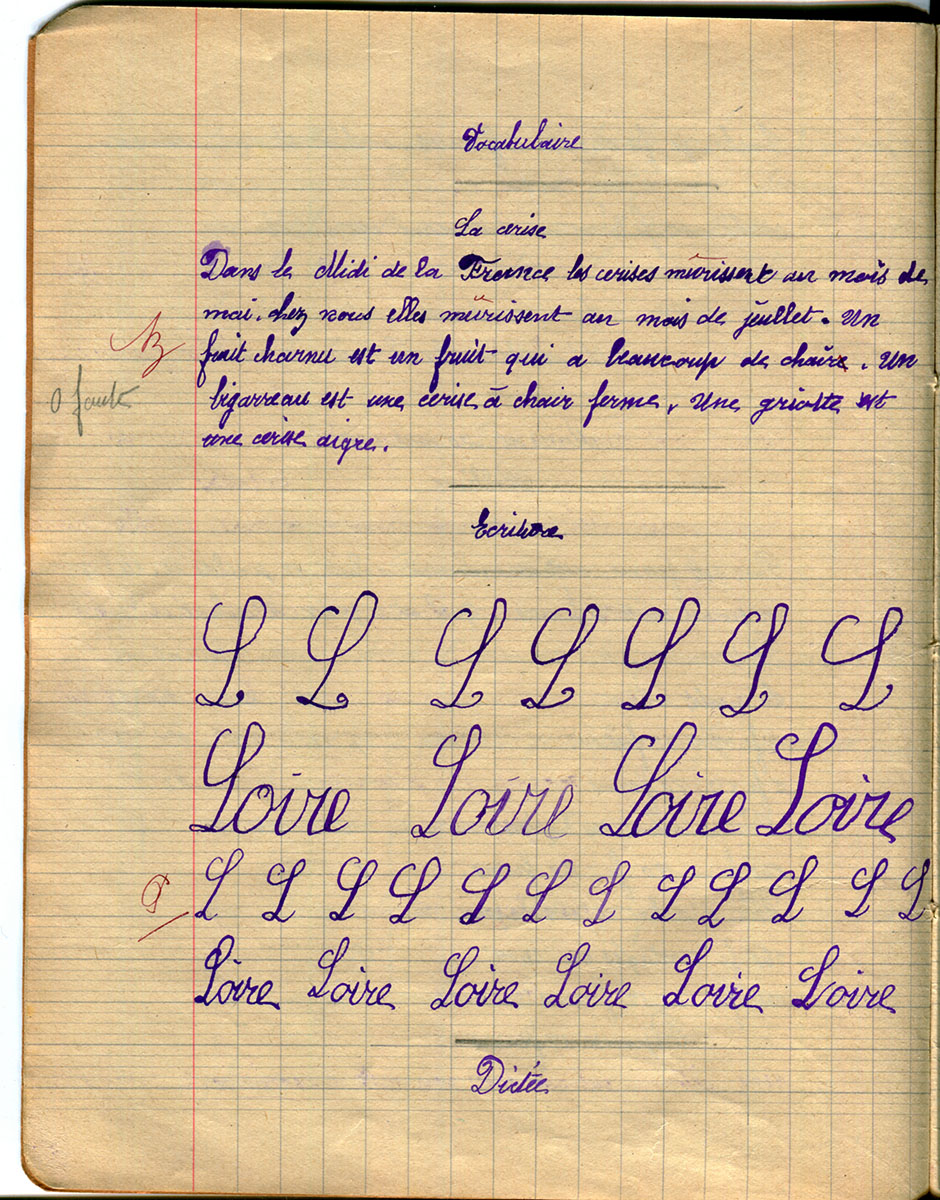 Vocabulaire
La cerise
Dans le Midi de la France les cerises mûrissent au mois de
mai. chez nous elles mûrissent au mois de juillet. Un
B
fruit charnu est un fruit qui a beaucoup de chair. Un
0 faute
bigarreau est une cerise à chair ferme. Une griotte est
une cerise aigre.
Ecriture
L L L L L L L
Loire Loire Loire Loire
L L L L L L L L L L L L
Loire Loire Loire Loire Loire Loire
Dictée